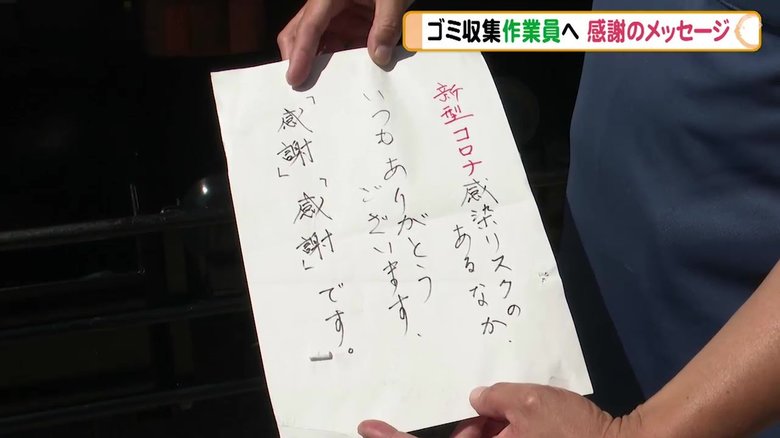 ゴミ収集作業員へ 感謝のメッセージ
新型コロナ感染リスクの
あるなか、
いつもありがとう
ございます、
「感謝」「感謝」です。